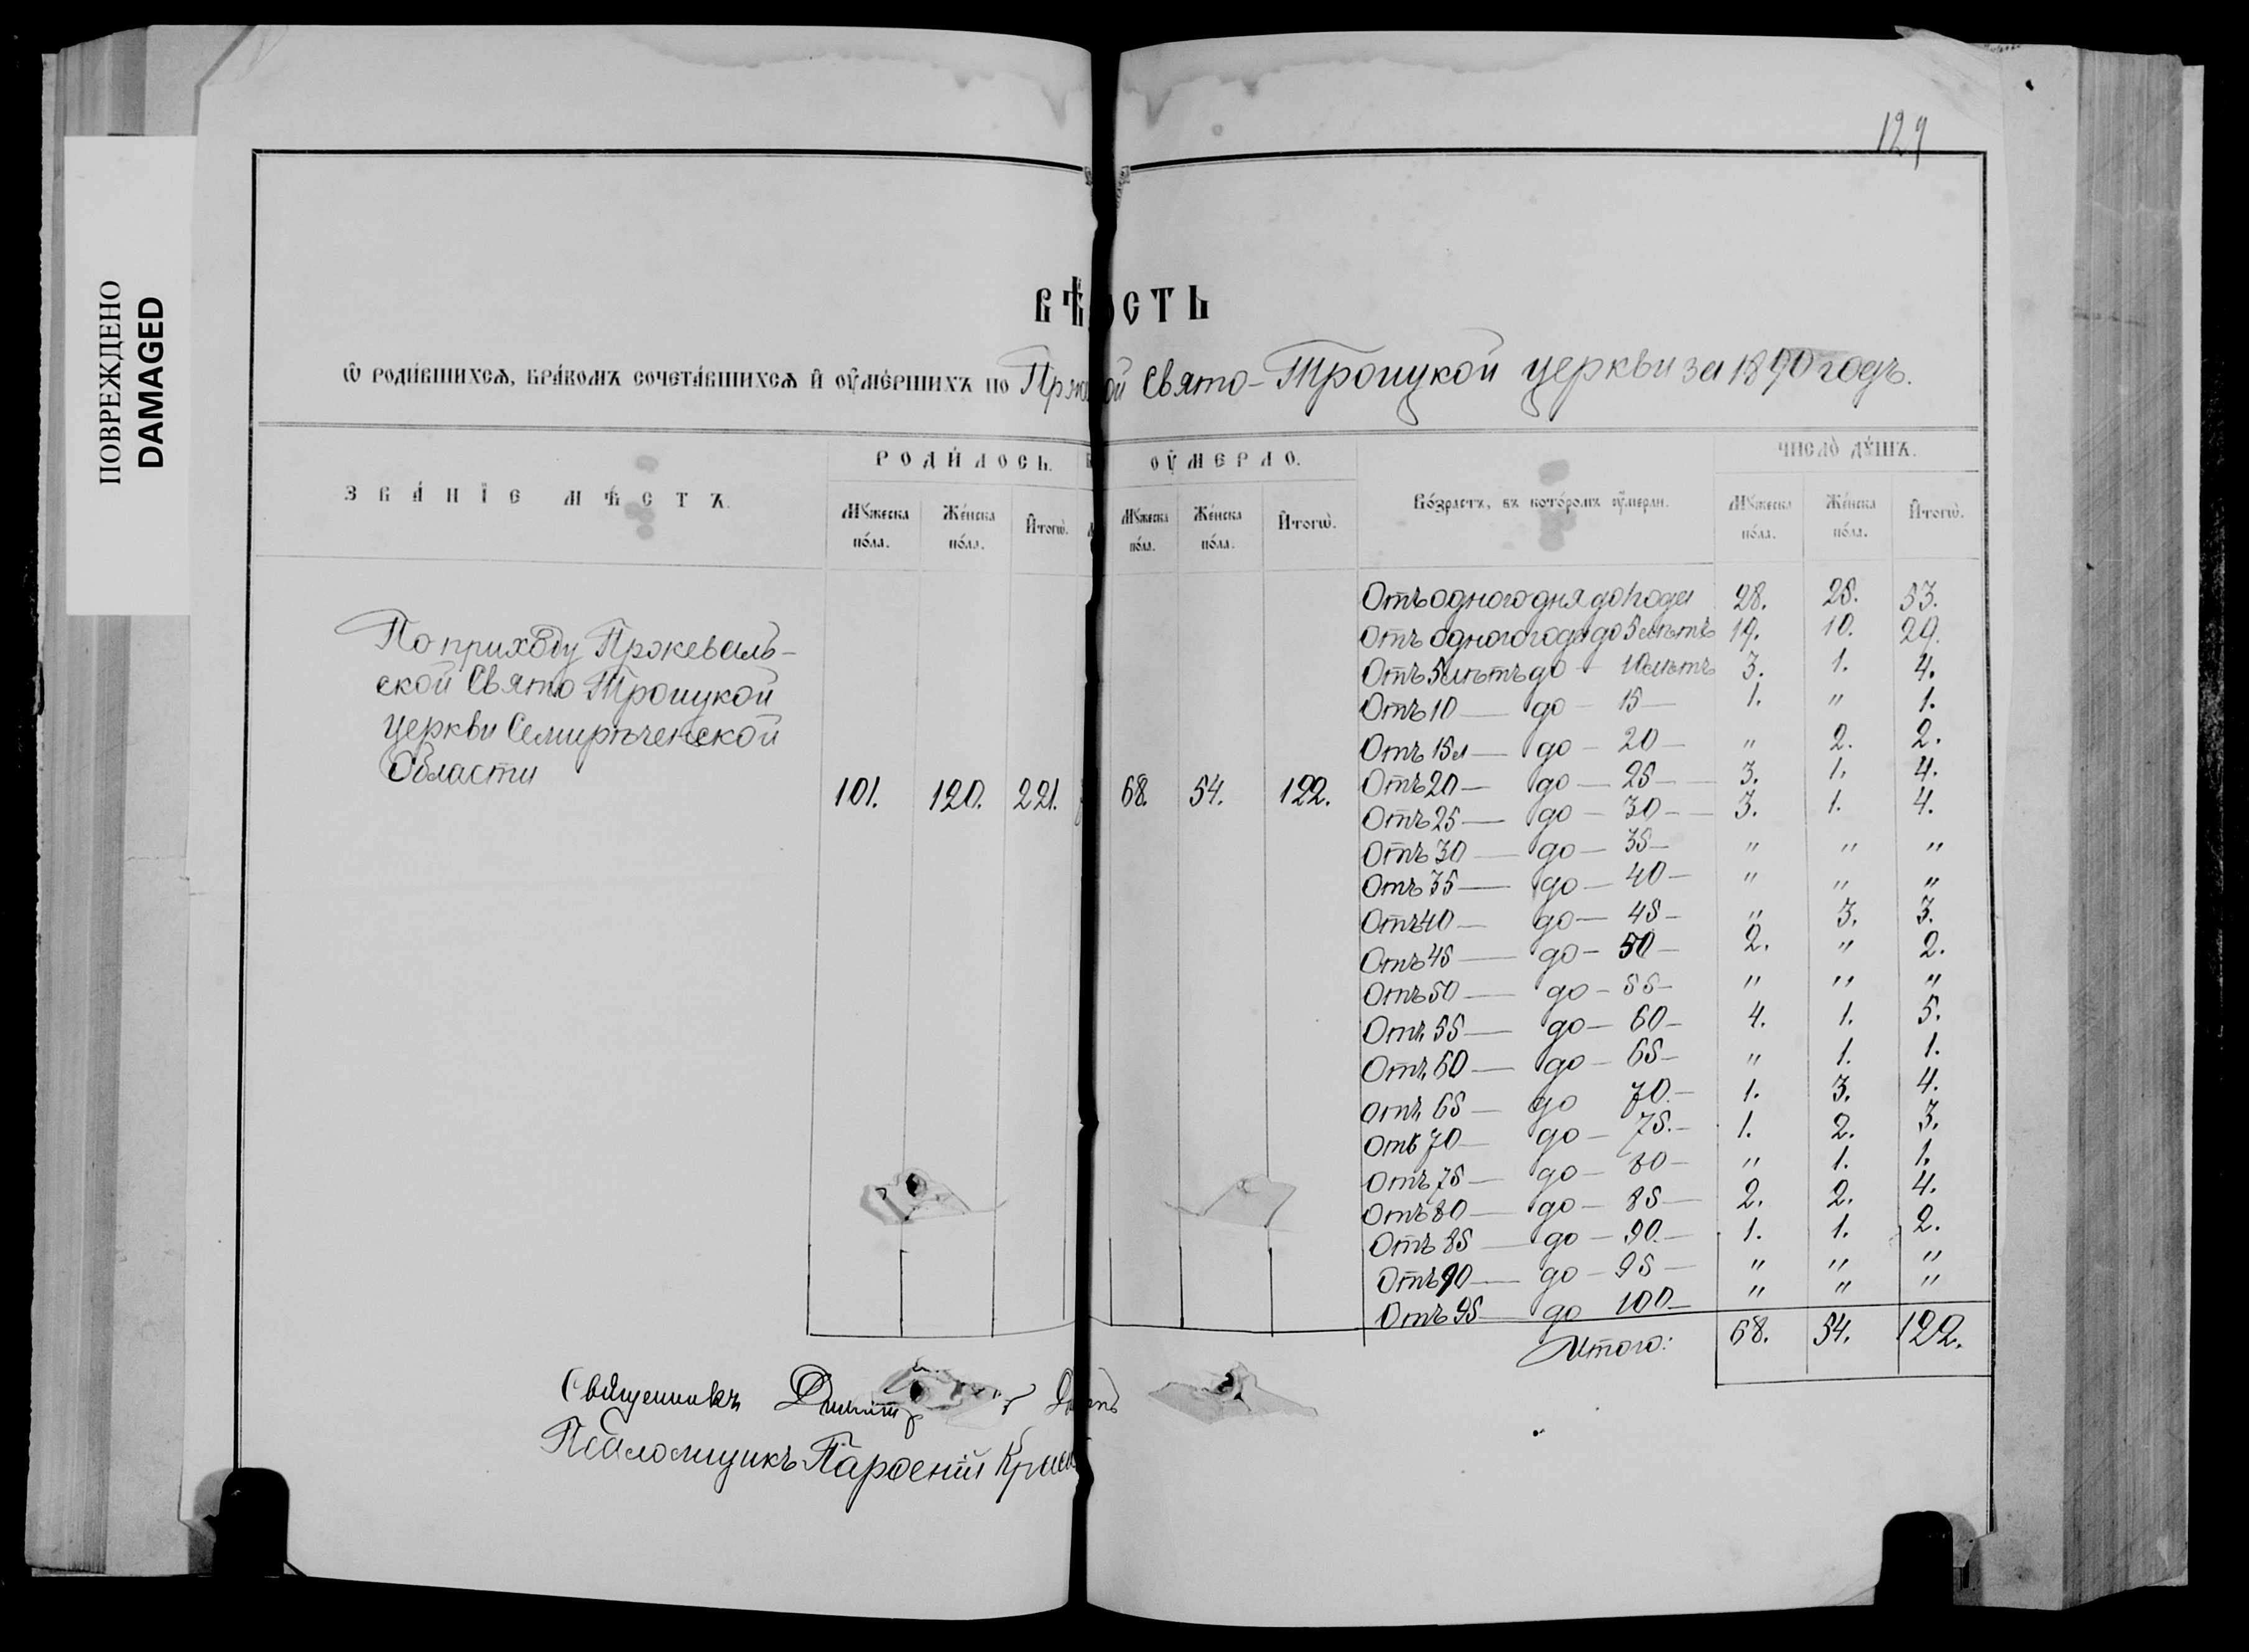 129
ПОВРЕЖДЕНО
DAMAGED
ВѢ ОСТЬ
Ѡ РОДИ́ВШИХСѦ, БРА́КОМЪ СОЧЕТА́ВШИХСѦ И҆ ОУ҆МЕ́РШИХЪ ПО Прж ой Свято-Троицкой церкви за 1890 годъ.
ЗВА́НІЕ МѢ́СТЪ.
РОДИ́ЛОСЬ.
ОУ҆МЕРЛО.
Во́зрастъ, въ кото́ромъ оу҆́мерли.
ЧИСЛО̀ ДꙊ́ШЪ.
Мꙋ́жеска по́ла.
Же́нска по́ла.
И҆тогѡ̀.
Мꙋ́жеска по́ла.
Же́нска по́ла.
И҆тогѡ̀.
Мꙋ́жеска по́ла.
Же́нска по́ла.
И҆тогѡ̀.
По приходу Пржеваль-
ской Свято Троицкой
церкви Семирѣченской
Области
101. 120. 221. 68. 54. 122.
Отъ одного дня до 1 года 28. 25. 53.
Отъ одного года до 5 лѣтъ 19. 10. 29.
Отъ 5 лѣтъ до - 10 лѣтъ 3. 1. 4.
Отъ 10 — до - 15 — 1. " 1.
Отъ 15 л — до - 20 — " 2. 2.
Отъ 20 — до — 25 — 3. 1. 4.
Отъ 25 — до - 30 — 3. 1. 4.
Отъ 30 — до — 35 — " " "
Отъ 35 — до — 40 — " " "
Отъ 40 — до — 45 — " 3. 3.
Отъ 45 — до - 50 — 2. " 2.
Отъ 50 — до - 55 — " " "
Отъ 55 — до — 60 — 4. 1. 5.
Отъ 60 — до — 65 — " 1. 1.
Отъ 65 — до 70. — 1. 3. 4.
Отъ 70 — до — 75. — 1. 2. 3.
Отъ 75 — до — 80 — " 1. 1.
Отъ 80 — до — 85 — 2. 2. 4.
Отъ 85 — до — 90. — 1. 1. 2.
Отъ 90 — до — 95 — " " "
Отъ 95 — до 100 — " " "
Итого: 68. 54. 122.
Священникъ Димитр
Псаломщикъ Парѳеній